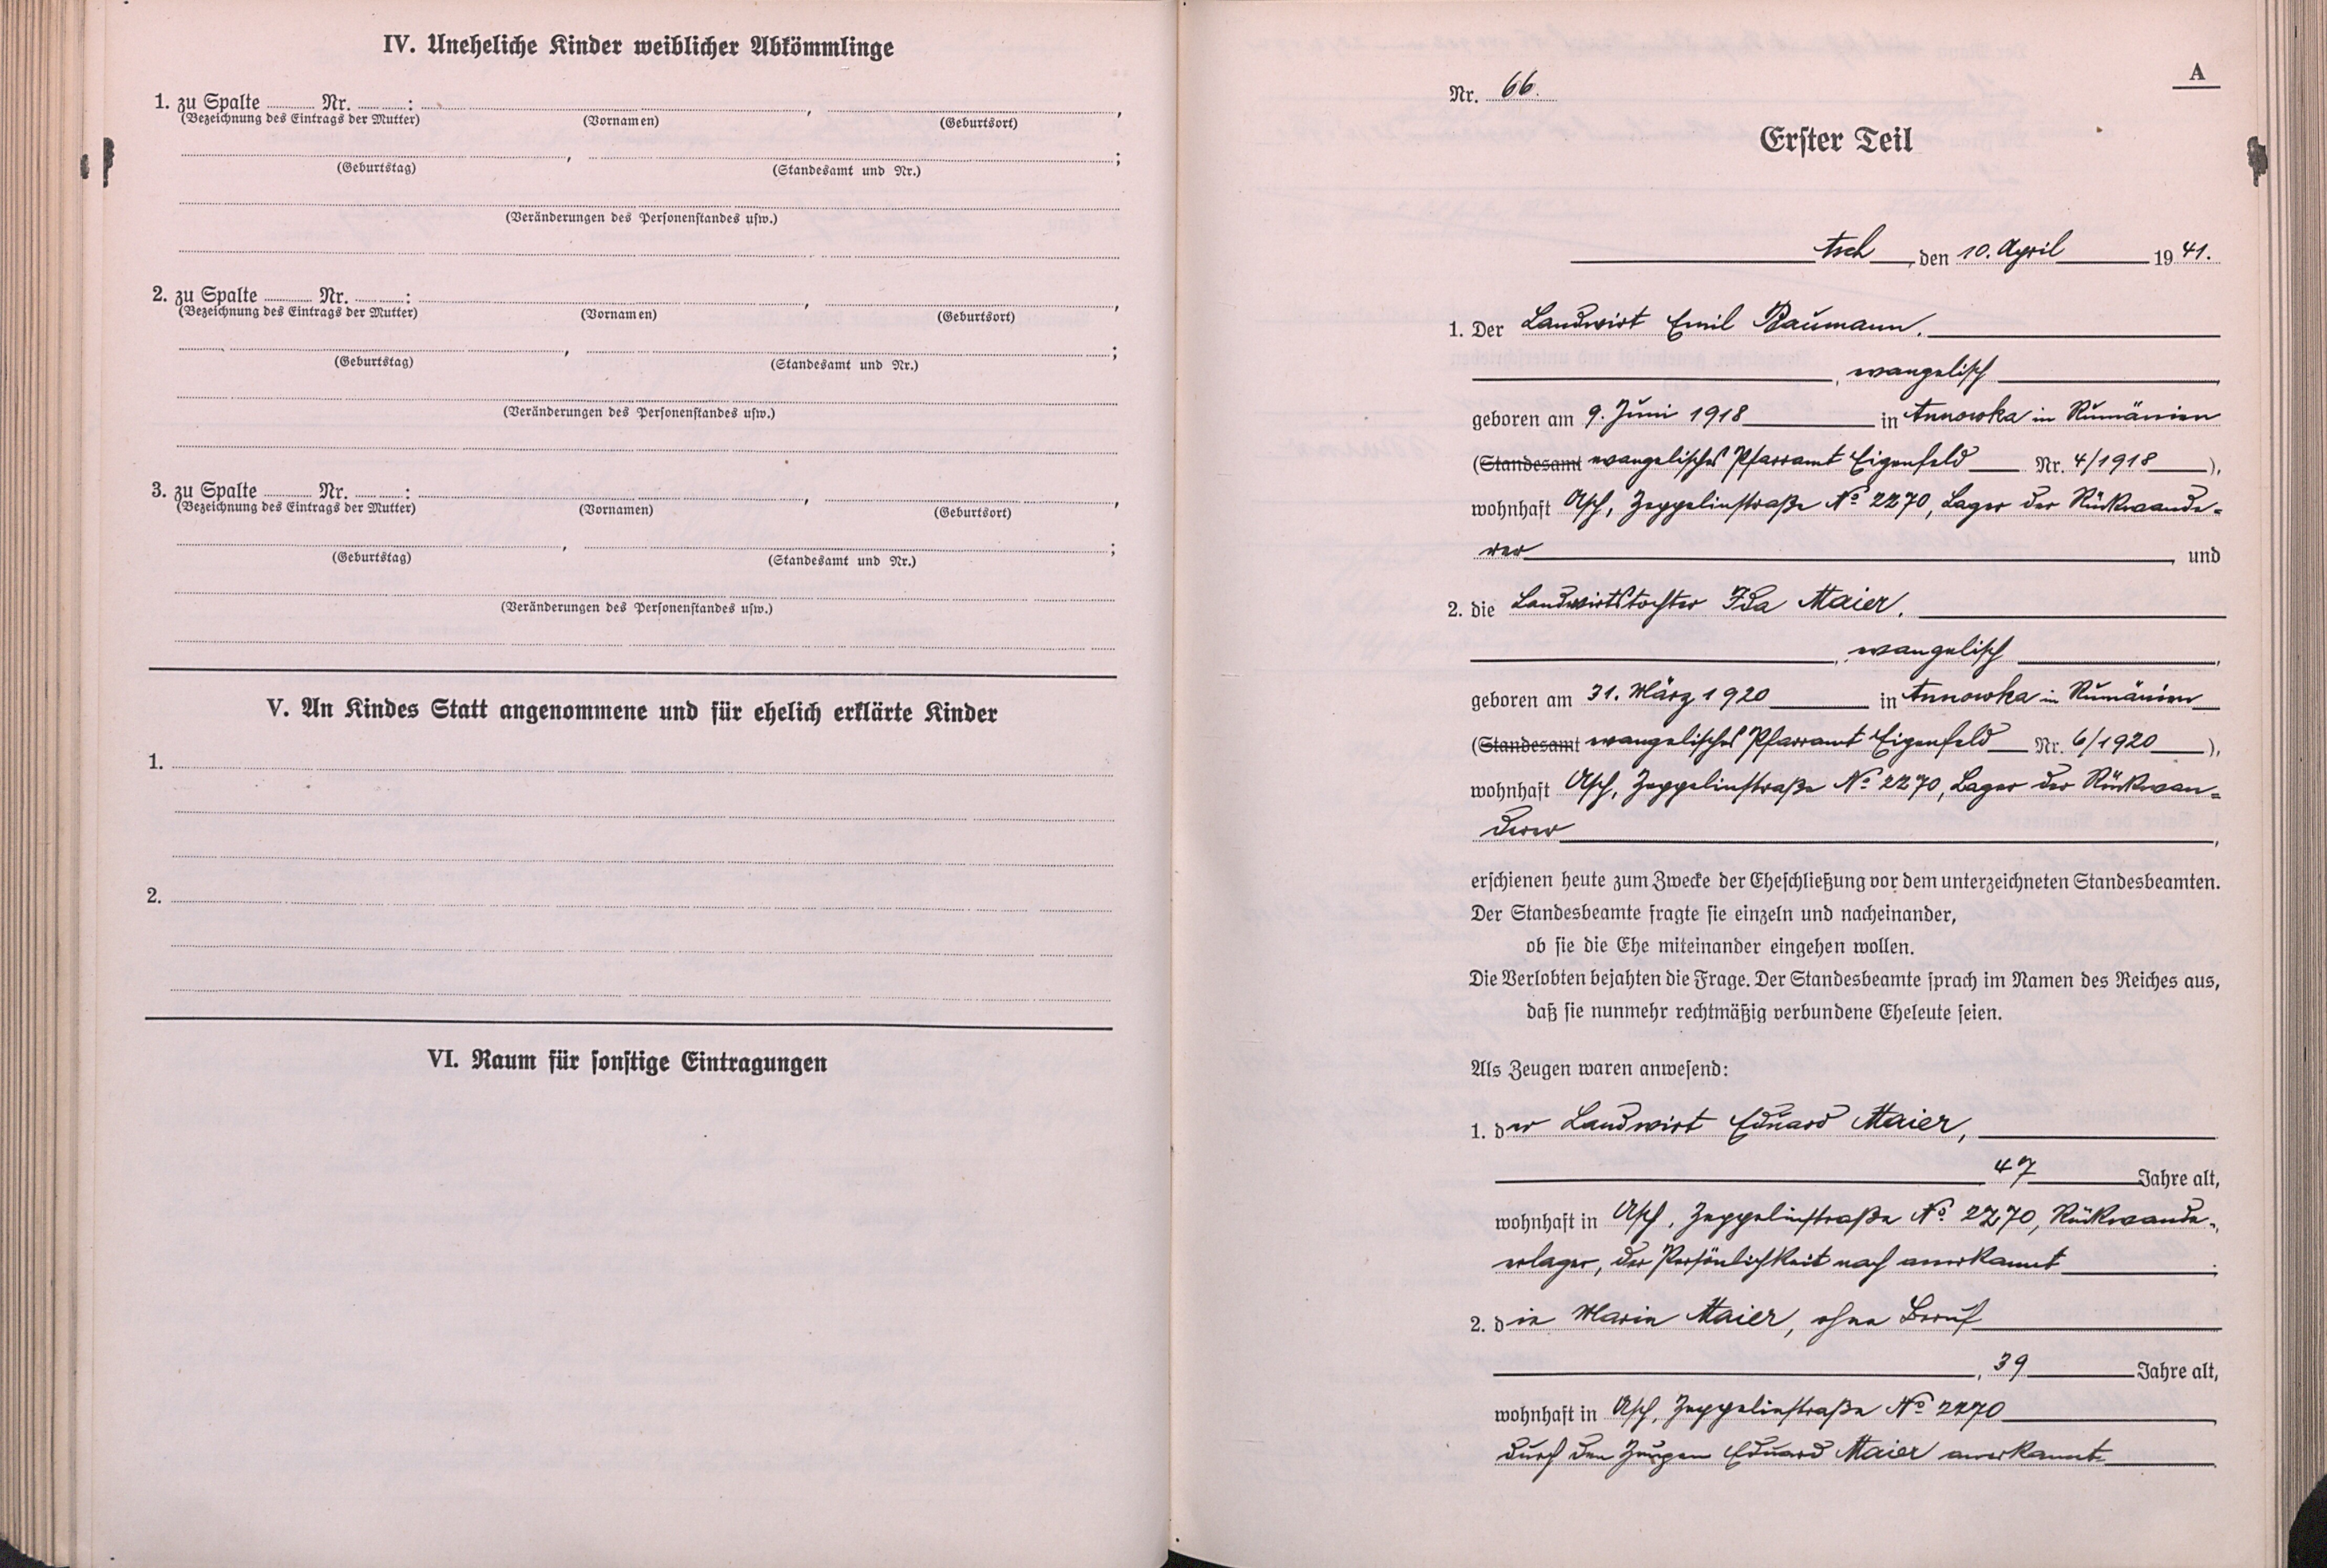 IV. Uneheliche Kinder weiblicher Abkömmlinge
1. zu Spalte ........ Nr. ........: ........, ........,
(Bezeichnung des Eintrags der Mutter) (Vornamen) (Geburtsort)
........, ........;
(Geburtstag) (Standesamt und Nr.)
(Veränderungen des Personenstandes usw.)
2. zu Spalte ........ Nr. ........: ........, ........,
(Bezeichnung des Eintrags der Mutter) (Vornamen) (Geburtsort)
........, ........;
(Geburtstag) (Standesamt und Nr.)
(Veränderungen des Personenstandes usw.)
3. zu Spalte ........ Nr. ........: ........, ........,
(Bezeichnung des Eintrags der Mutter) (Vornamen) (Geburtsort)
........, ........;
(Geburtstag) (Standesamt und Nr.)
(Veränderungen des Personenstandes usw.)
V. An Kindes Statt angenommene und für ehelich erklärte Kinder
1.
2.
VI. Raum für sonstige Eintragungen
A
Nr. 66.
Erster Teil
Asch, den 10. April 1941.
1. Der Landwirt Emil Baumann.
, evangelisch,
geboren am 9. Juni 1918 in Annowka in Rumänien
(Standesamt evangelisches Pfarramt Eigenfeld Nr. 4/1918),
wohnhaft Asch, Zeppelinstraße No 2270, Lager der Rückwande=
rer und
2. die Landwirtstochter Ida Maier.
, evangelisch,
geboren am 31. März 1920 in Annowka in Rumänien
(Standesamt evangelisches Pfarramt Eigenfeld Nr. 6/1920),
wohnhaft Asch, Zeppelinstraße No 2270, Lager der Rückwan=
derer,
erschienen heute zum Zwecke der Eheschließung vor dem unterzeichneten Standesbeamten.
Der Standesbeamte fragte sie einzeln und nacheinander,
ob sie die Ehe miteinander eingehen wollen.
Die Verlobten bejahten die Frage. Der Standesbeamte sprach im Namen des Reiches aus,
daß sie nunmehr rechtmäßig verbundene Eheleute seien.
Als Zeugen waren anwesend:
1. der Landwirt Eduard Maier,
47 Jahre alt,
wohnhaft in Asch, Zeppelinstraße No 2270, Rückwande=
rerlager, der Persönlichkeit nach anerkannt.
2. die Marie Maier, ohne Beruf
, 39 Jahre alt,
wohnhaft in Asch, Zeppelinstraße No 2270,
durch den Zeugen Eduard Maier anerkannt.